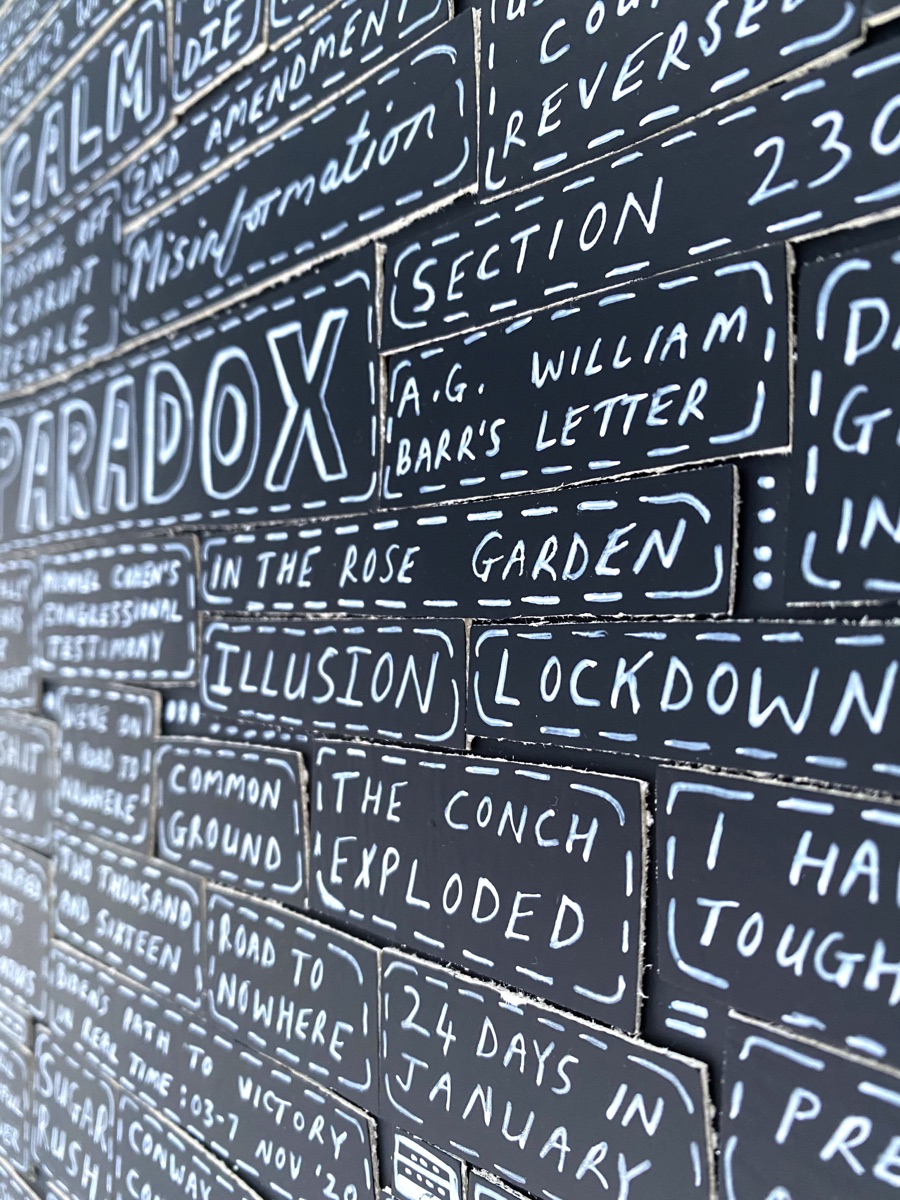 CALM
DIE
2ND AMENDMENT
REVERSED
Misinformation
SECTION 230
CORRUPT
PEOPLE
PARADOX
A.G. WILLIAM
BARR'S LETTER
IN THE ROSE GARDEN
MICHAEL COHEN'S
CONGRESSIONAL
TESTIMONY
ILLUSION
LOCKDOWN
WE'RE ON
A ROAD TO
NOWHERE
COMMON
GROUND
THE CONCH
EXPLODED
I HA
TOUGH
TWO THOUSAND
AND SIXTEEN
ROAD TO
NOWHERE
24 DAYS IN
JANUARY
BIDEN'S PATH TO VICTORY
IN REAL TIME: 03-7 NOV '20
SUGAR
RUSH
CONWAY
PRE